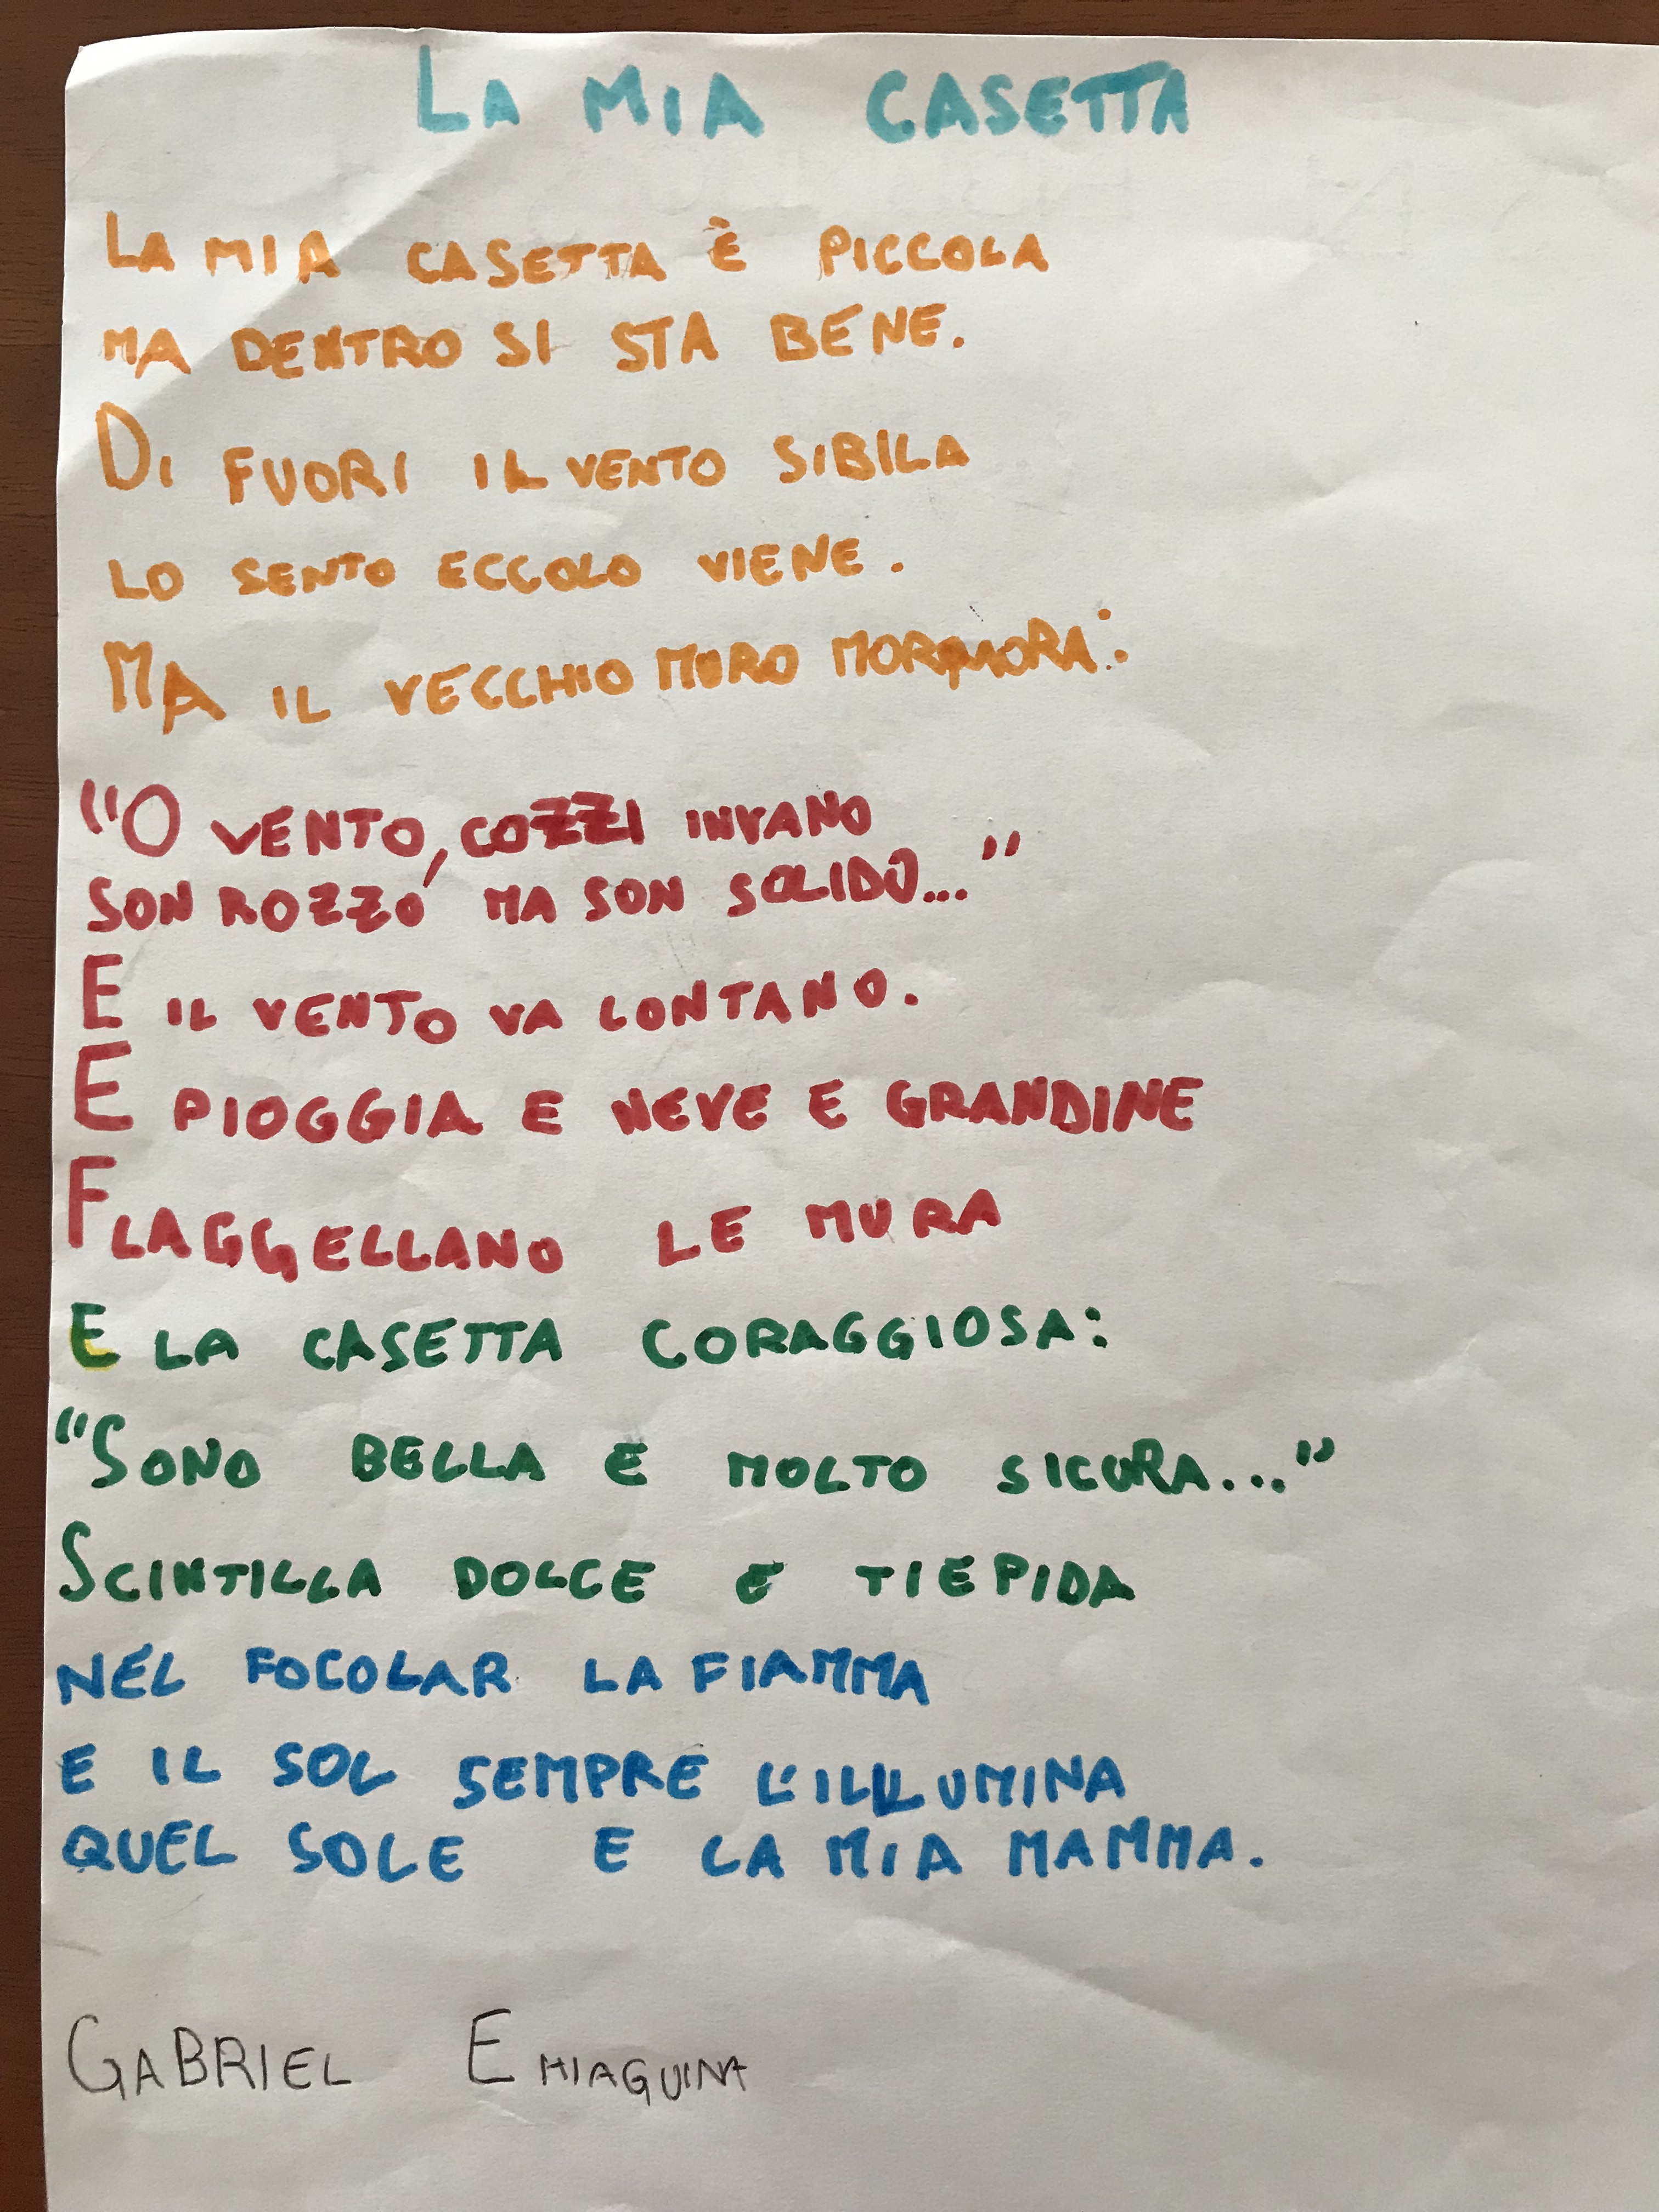 LA MIA CASETTA
LA MIA CASETTA È PICCOLA
MA DENTRO SI STA BENE.
DI FUORI IL VENTO SIBILA
LO SENTO ECCOLO VIENE.
MA IL VECCHIO MURO MORMORA:
"O VENTO, COZZI INVANO
SON ROZZO, MA SON SOLIDO..."
E IL VENTO VA LONTANO.
E PIOGGIA E NEVE E GRANDINE
FLAGGELLANO LE MURA
E LA CASETTA CORAGGIOSA:
"SONO BELLA E MOLTO SICURA..."
SCINTILLA DOLCE E TIEPIDA
NEL FOCOLAR LA FIAMMA
E IL SOL SEMPRE L'ILLUMINA
QUEL SOLE E LA MIA MAMMA.
GABRIEL